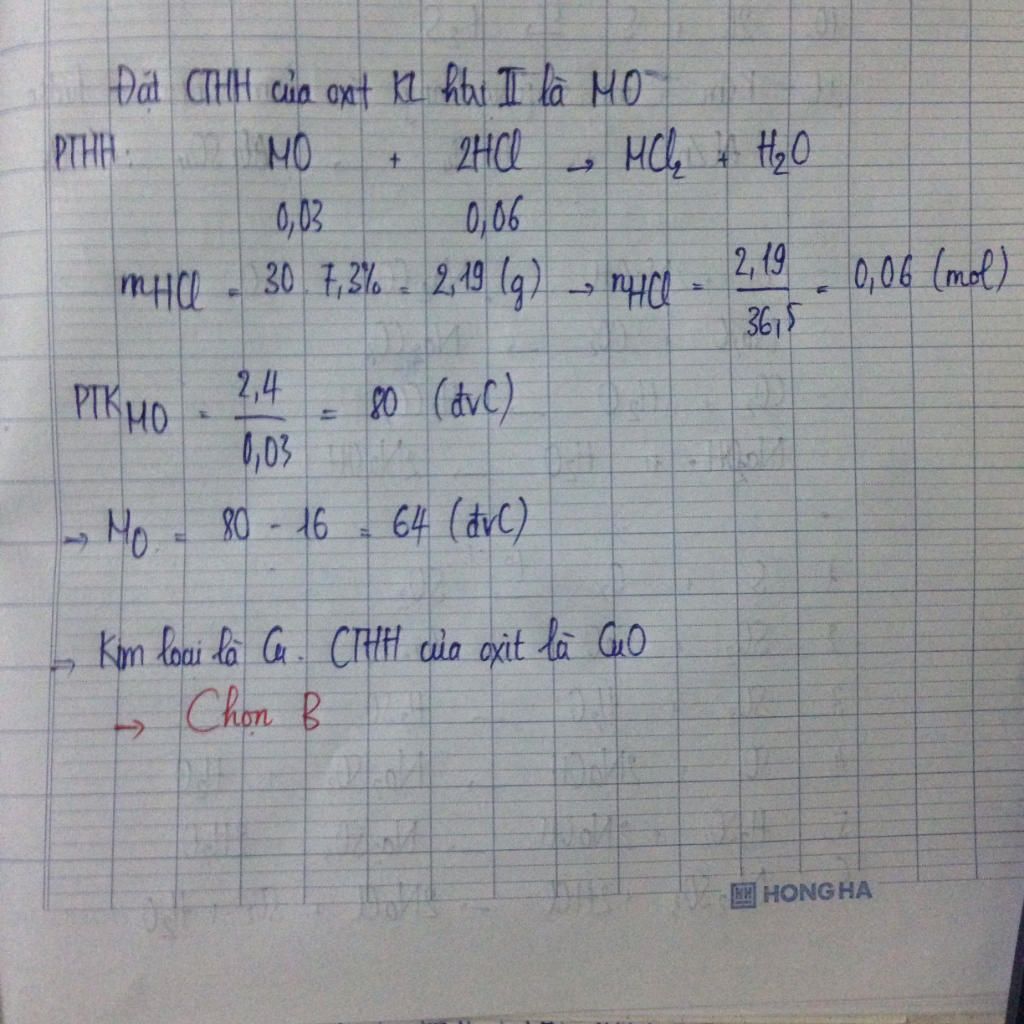 Đặt CTHH của oxit KL htrị II là MO
PTHH: MO + 2HCl → MCl₂ + H₂O
0,03 0,06
mHCl = 30 . 7,3% = 2,19 (g) → nHCl = 2,19 / 36,5 = 0,06 (mol)
PTK MO = 2,4 / 0,03 = 80 (đvC)
→ MO = 80 - 16 = 64 (đvC)
→ Kim loại là Cu. CTHH của oxit là CuO
→ Chọn B
HONG HA